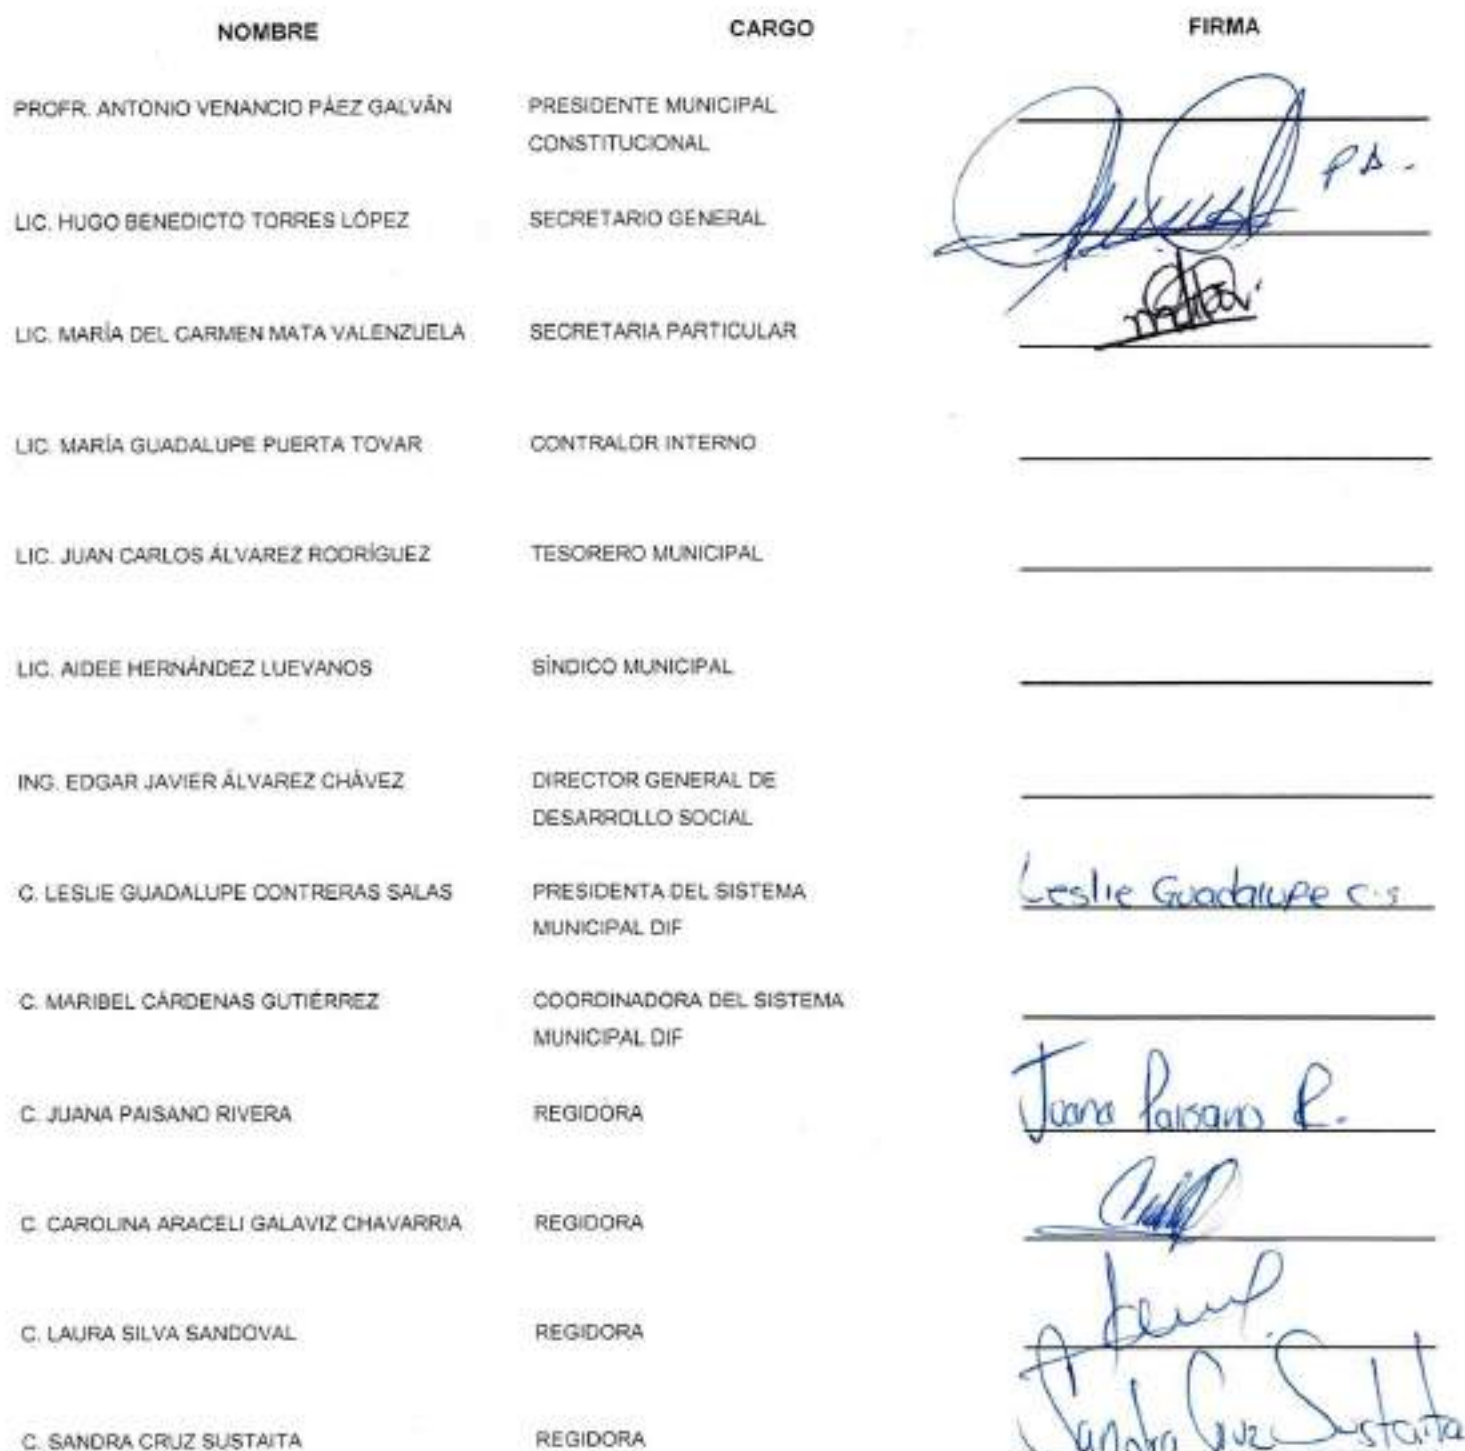 NOMBRE CARGO FIRMA
PROFR. ANTONIO VENANCIO PÁEZ GALVÁN PRESIDENTE MUNICIPAL
CONSTITUCIONAL
P.A.
LIC. HUGO BENEDICTO TORRES LÓPEZ SECRETARIO GENERAL
LIC. MARÍA DEL CARMEN MATA VALENZUELA SECRETARIA PARTICULAR
LIC. MARÍA GUADALUPE PUERTA TOVAR CONTRALOR INTERNO
LIC. JUAN CARLOS ÁLVAREZ RODRÍGUEZ TESORERO MUNICIPAL
LIC. AIDEE HERNÁNDEZ LUEVANOS SÍNDICO MUNICIPAL
ING. EDGAR JAVIER ÁLVAREZ CHÁVEZ DIRECTOR GENERAL DE
DESARROLLO SOCIAL
C. LESLIE GUADALUPE CONTRERAS SALAS PRESIDENTA DEL SISTEMA Leslie Guadalupe C.S
MUNICIPAL DIF
C. MARIBEL CÁRDENAS GUTIÉRREZ COORDINADORA DEL SISTEMA
MUNICIPAL DIF
C. JUANA PAISANO RIVERA REGIDORA Juana Paisano R.
C. CAROLINA ARACELI GALAVIZ CHAVARRIA REGIDORA
C. LAURA SILVA SANDOVAL REGIDORA
C. SANDRA CRUZ SUSTAITA REGIDORA Sandra Cruz Sustaita